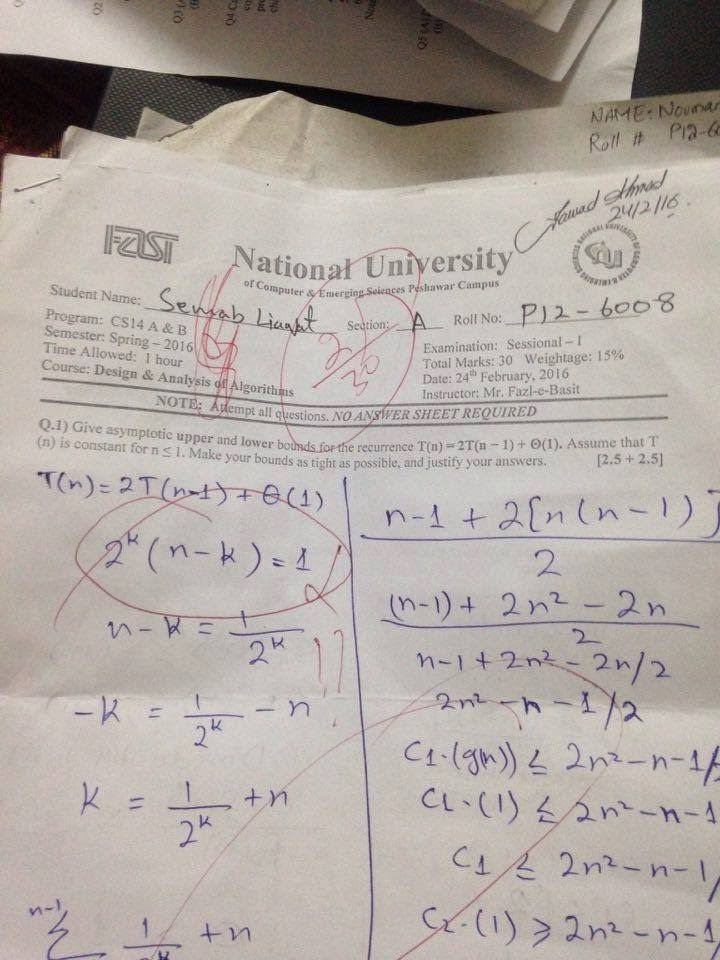 Q2
Q3 (A)
Q4 Ca
Q5 (A)
NAME: Nouman
Roll # P12-6
Fawad Ahmad
24/2/16.
FAST
National University
of Computer & Emerging Sciences Peshawar Campus
Student Name: Semab Liaqat Section: A Roll No: P12-6008
Program: CS14 A & B
Semester: Spring – 2016
Time Allowed: 1 hour
Course: Design & Analysis of Algorithms
2/30
Examination: Sessional – I
Total Marks: 30 Weightage: 15%
Date: 24th February, 2016
Instructor: Mr. Fazl-e-Basit
NOTE: Attempt all questions. NO ANSWER SHEET REQUIRED
Q.1) Give asymptotic upper and lower bounds for the recurrence T(n) = 2T(n − 1) + Θ(1). Assume that T
(n) is constant for n ≤ 1. Make your bounds as tight as possible, and justify your answers. [2.5 + 2.5]
T(n) = 2T(n-1) + Θ(1)
2^k (n-k) = 1
n-k = 1/2^k
!!
-k = 1/2^k - n
k = 1/2^k + n
n-1
Σ 1/2^k + n
n-1 + 2[n(n-1)]
2
(n-1) + 2n² - 2n
2
n-1 + 2n² - 2n/2
2n² - n - 1/2
C1.(g(n)) ≤ 2n²-n-1/
C1.(1) ≤ 2n²-n-1
C1 ≤ 2n²-n-1/
C2.(1) ≥ 2n²-n-1/